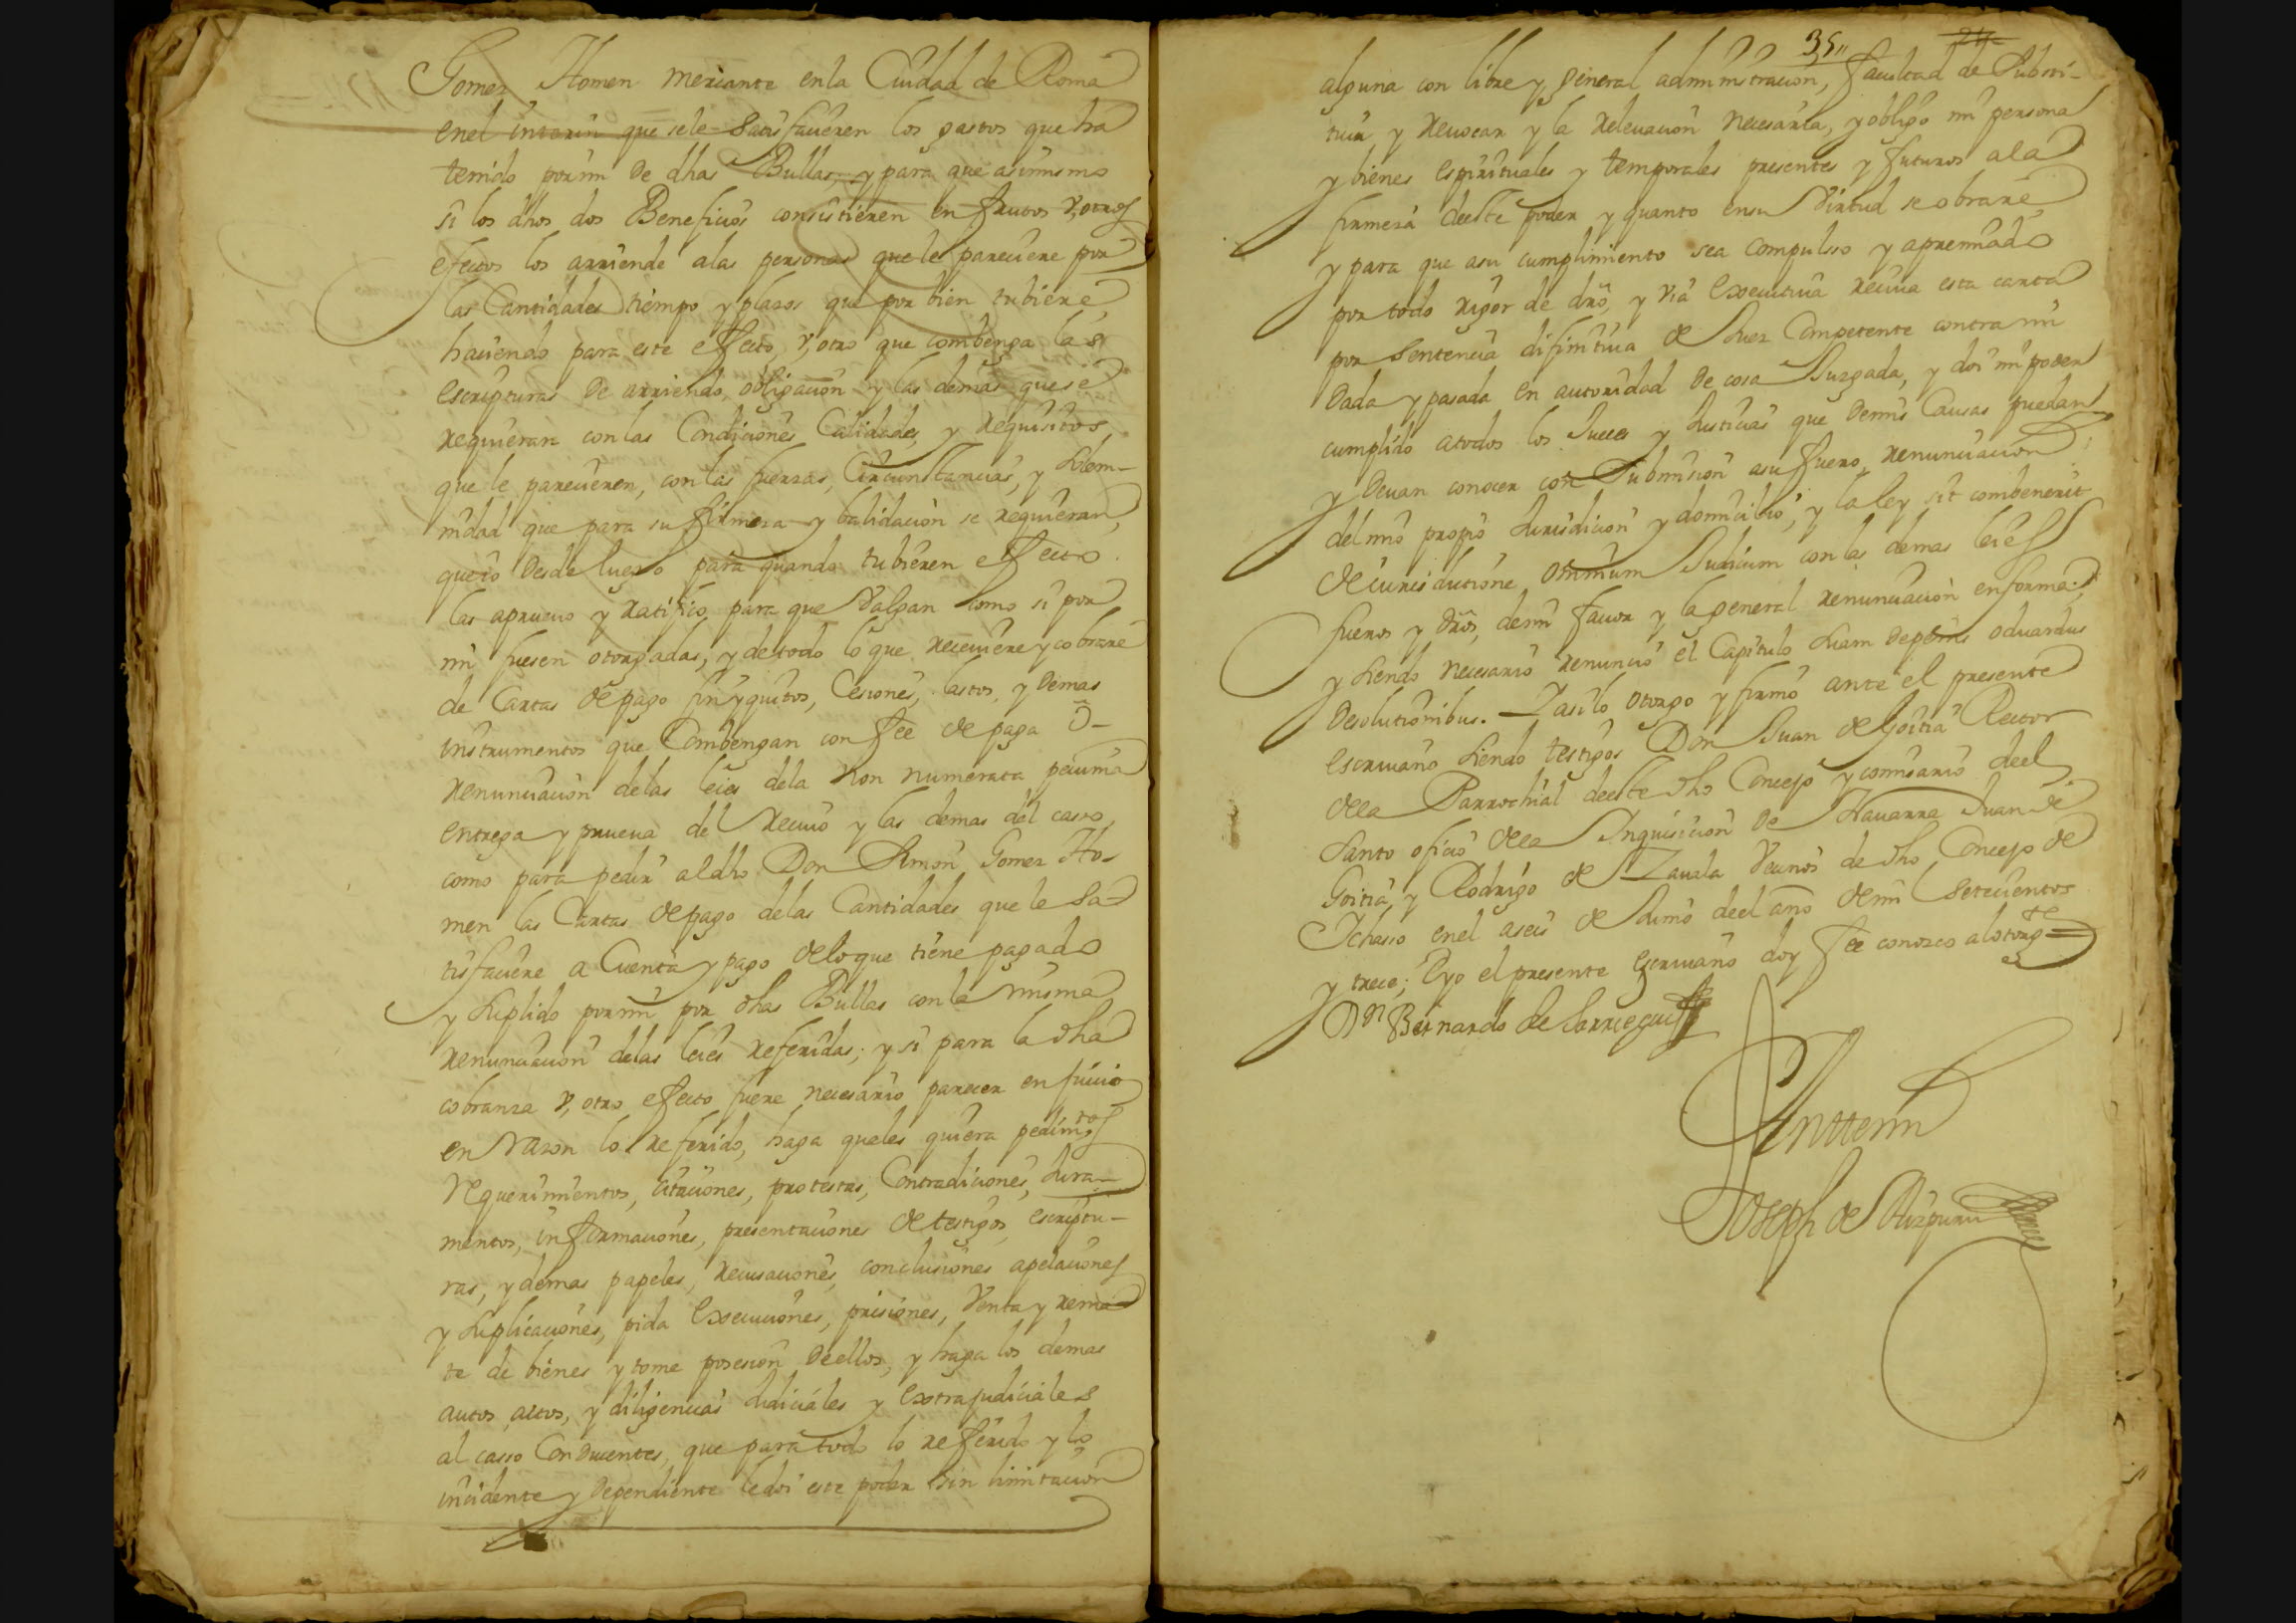 Gomez Homen merçante en la Ciudad de Roma
en el interin que se le satisfacieren los gastos que ha
tenido por mi de dhas Bullas, y para que asimismo
si los dhos dos Beneficios consistieren en frutos v, otros
efectos los arriende a las personas que le pareciere por
las Cantidades tiempo y plazos que por bien tubiere
haciendo para este effecto, v, otro que combenga las
escripturas de arriendo, obligacion y las demas que se
requieran con las Condiciones Calidades, y requisitos
que le parecieren, con las fuerzas, Circunstancias, y solem-
nidad que para su firmeza y balidacion se requieran,
que io desde luego para quando tubieren effecto
las apruevo y ratifico, para que valgan como si por
mi fuesen otorgadas, y de todo lo que reciviere y cobrare
de Cartas de pago finyquitos, Cesiones, lastos, y demas
instrumentos que Combengan con fee de paga ó-
renunciacion de las leies de la non numerata pecunia
entrega y prueva del recivo y las demas del casso,
como para pedir al dho Don Simon Gomez Ho-
men las Cartas de pago de las Cantidades que le sa-
tisfaciere a Cuenta y pago de lo que tiene pagado
y suplido por mi por dhas Bullas con la misma
renunciacion de las leies referidas; y si para la dha
cobranza v, otro efecto fuere necesario parecer en juicio
en razon lo referido, haga quales quiera pedimtos
requerimientos, citaciones, protestas, Contradiciones, Jura-
mentos, informaciones, presentaciones de testigos, escriptu-
ras, y demas papeles, recusaciones, conclusiones apelaciones
y suplicaciones, pida execuciones, prisiones, venta y rema-
te de bienes y tome posesion de ellos, y haga los demas
autos actos, y diligencias Judiciales y extrajudiciales
al casso Conducentes, que para todo lo refferido y lo
incidente y dependiente le doi este poder sin limitacion
35
alguna con libre y general administracion, facultad de substi-
tuir y revocar y la relevacion necesaria, y obligo mi persona
y bienes espirituales y temporales presentes y futuros a la
firmeza de este poder y quanto en su virtud se obrare
y para que a su cumplimiento sea compulso y apremiado
por todo rigor de dro, y via executiva reciva esta carta
por sentencia difinitiva de Juez Competente contra mi
dada y pasada en autoridad de cosa Juzgada, y doi mi poder
cumplido a todos los Jueces y Justicias que de mis Causas puedan
y devan conocer con submision a su fuero, renunciacion
del mio propio Jurisdicion y domicilio, y la ley sit combenerit
de iurisdictione omnium Judicum con las demas leies
fueros y dros, de mi favor y la general renunciacion en forma;
y siendo necesario renuncio el Capitulo suam de penis oduardus
de solutionibus. Y asi lo otorgo y firmo ante el presente
escrivano siendo testigos Don Juan de Goitia Rector
de la Parrochial de este dho Concejo y comisario de el
santo oficio de la Inquisicion de Navarra Juan de
Goitia, y Rodrigo de Zavala vecinos de dho Concejo de
Ichaso en el a seis de Junio de el año de mil setecientos
y trece; E yo el presente escrivano doy fee conozco al otorgte
Dn Bernardo de Larrcegui
Antte mi
Joseph de Aizpuru